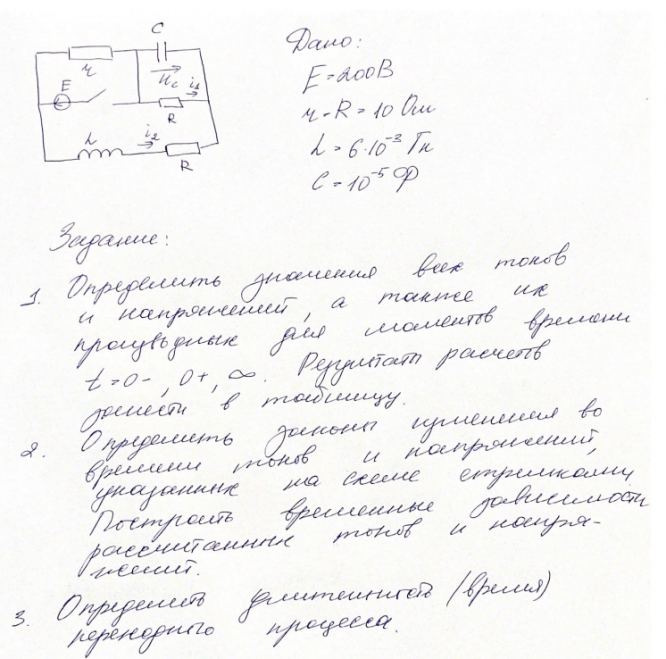 C
r
E
u_c
i_1
R
L
i_2
R
Дано:
E=200В
r=R=10 Ом
L=6·10^-3 Гн
C=10^-5 Ф
Задание:
1. Определить значения всех токов
и напряжений, а также их
производных для моментов времени
t=0-, 0+, ∞. Результаты расчетов
занести в таблицу.
2. Определить законы изменения во
времени токов и напряжений,
указанных на схеме стрелками
Построить временные зависимости
рассчитанных токов и напря-
жений.
3. Определить длительность (время)
переходного процесса.